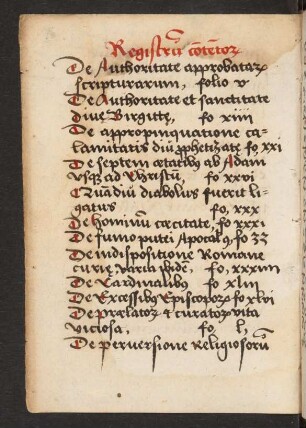 Registrū cōtētoꝝ
De Authoritate approbataꝝ
scripturarum, folio v
De Authoritate et sanctitate
diuę Birgittę, fo xiiii
De appropinquatione ca-
lamitatis diu ꝓphetizate fo, xxi
De septem ætatibꝫ ab Adam
vsqꝫ ad Christū, fo xxvi
Quādiu diabolus fuerit li-
gatus fo, xxx
De hominū cæcitate, fo xxxi
De fumo putei Apocal 9, fo 33
De indispositione Romane
curię varia ibidē, fo, xxxiiii
De Cardinalibꝫ fo xlii
De Excessibꝫ Episcopoꝝ fo xlvi
De prælatoꝝ & curatoꝝ vita
viciosa, fo l,
De peruersione Religiosorū